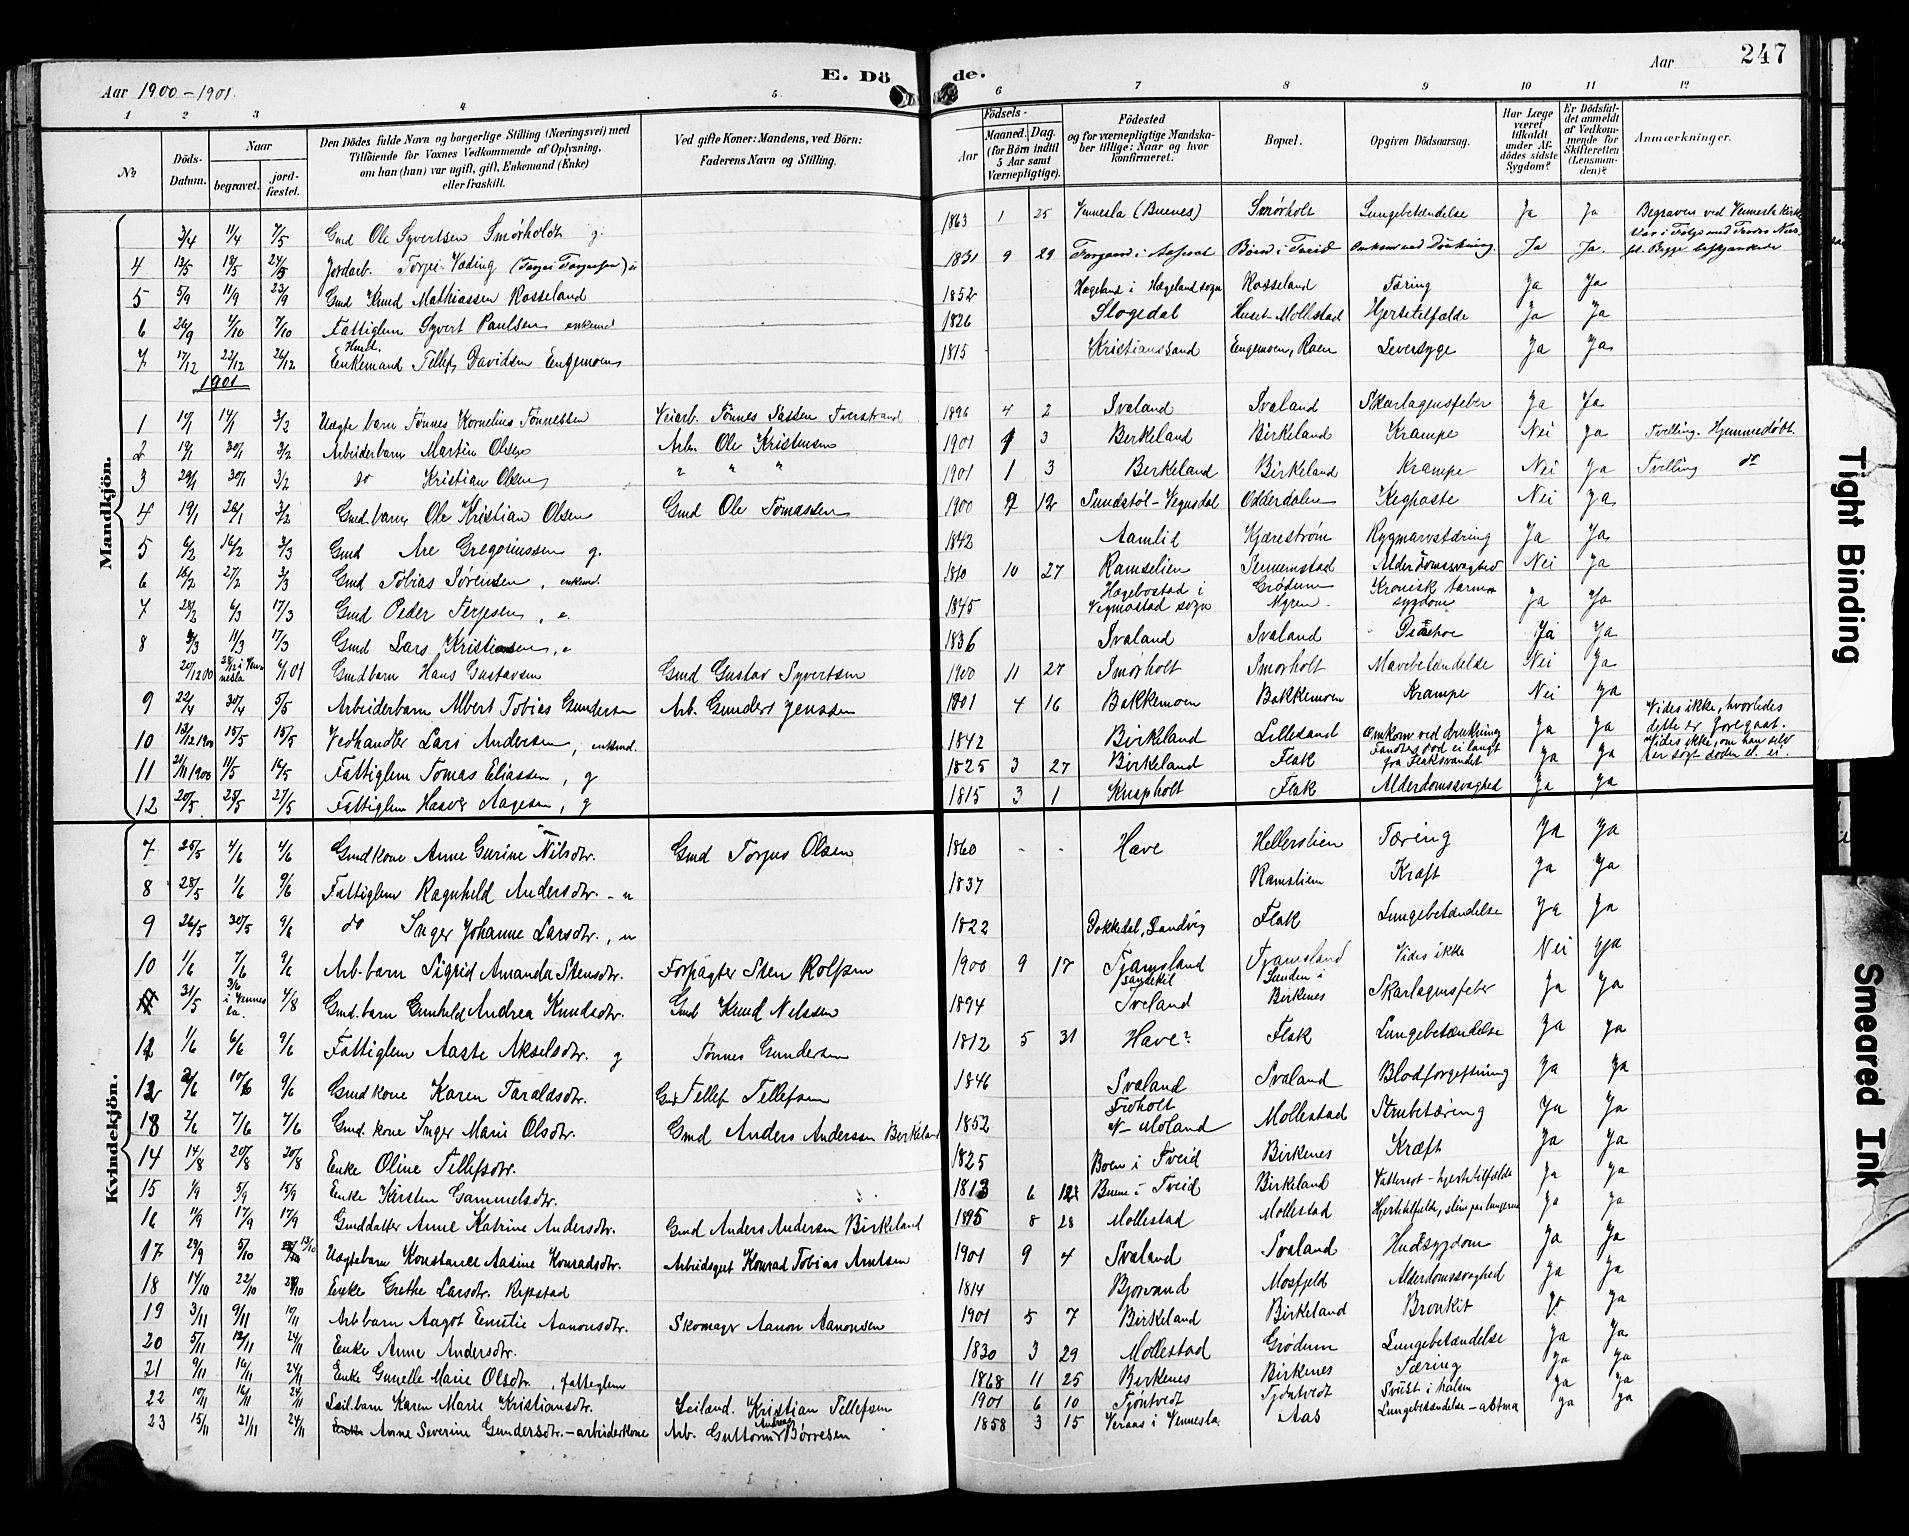 247
Aar 1900-1901.
E. Dö de.
Aar
1 2 3 4 5 6 7 8 9 10 11 12
No
Döds-Datum.
Naar
begravet.
jord-fæstet.
Den Dödes fulde Navn og borgerlige Stilling (Næringsvei) med Tilföiende for Voxnes Vedkommende af Oplysning, om han (hun) var ugift, gift, Enkemand (Enke) eller fraskilt.
Ved gifte Koner: Mandens, ved Börn: Faderens Navn og Stilling.
Födsels-
Aar
Maaned. Dag.
(for Börn indtil 5 Aar samt Værnepligtige).
Födested og for værnepligtige Mandskaber tillige: Naar og hvor konfirmeret.
Bopæl.
Opgiven Dödsaarsag.
Har Læge været tilkaldt under Afdödes sidste Sygdom?
Er Dödsfuldet anmeldt af Vedkommende for Skifteretten (Lensmanden)?
Anmærkninger.
Mandkjön.
3/4 11/4 7/5 Gmd Ole Syvertsen Smørholdt g. 1863 1 25 Vennesla (Buenes) Smørholt Lungebetændelse Ja Ja Begraven ved Vennesla Kirke
4 13/5 18/5 24/5 Jordarb. Torjei (Torjei Torjersen) 1831 9 29 i Tveid Ja Ja.
5 5/9 11/9 23/9 Gmd Knud Mathiassen Rosseland 1852 Hægeland i Hægeland sogn Rosseland Tæring Ja Ja
6 26/9 4/10 7/10 Fattiglem Syvert Paulsen enkemd 1826 Slogedal Huset Mollestad Hjertetilfælde Ja Ja
7 17/12 23/12 26/12 Enkemand Tellef Davidsen Engemoen 1815 Kristianssand Engemoen, Roen Leversyge Ja Ja
1901
1 10/1 14/1 3/2 Uægte barn Tønnes Kornelius Tønnessen Veiarb. Tønnes Tverstrand 1896 4 2 Svaland Svaland Skarlagensfeber Ja Ja
2 19/1 30/1 3/2 Arbeiderbarn Martin Olsen Arb. Ole Kristensen 1901 1 3 Berkeland Birkeland Krampe Nei Ja Tvelling. Hjemmedøbt.
3 29/1 30/1 3/2 do Kristian Olsen " " " 1901 1 3 Birkeland Birkeland Krampe Nei Ja Tvelling do
4 19/1 26/1 3/2 Gmd.barn Ole Kristian Olsen Gmd Ole Tomassen 1900 7 12 Sundstøl-Vegusdal Odderdalen Kighoste Nei Ja
5 6/2 16/2 3/3 Gmd Are Gregoriussen g. 1842 Aamlid Kjærestrøm Rygmarvstæring Ja Ja
6 16/2 27/2 3/3 Gmd Tobias Sørensen, enkemd. 1810 10 27 Ramselien Tennemstad Alderdomssvaghed Nei Ja
7 28/2 6/3 17/3 Gmd Peder Terjesen, e. 1845 Hægebostad i Vigmostad sogn Grødum Myren. Kronisk tarmsygdom Ja Ja
8 9/3 11/3 17/3 Gmd Lars Kristiansen, e 1836 Svaland Svaland Ja Ja
20/12 00 24/12 i Vennesla 4/1 01 Gmdbarn Hans Gustavsen Gmd Gustav Syvertsen 1900 11 27 Smørholt Smørholt Mavebetændelse Nei Ja
9 22/4 30/4 5/5 Arbeiderbarn Albert Tobias Gundersen Arb. Gunders Jenssen 1901 4 16 Bakkemoen Bakkemoen Krampe Nei Ja
10 13/12 1900 15/5 15/5 Vedhandler Lars Andersen, enkemd. 1842 Birkeland Lillesand Omkom ved drukning Ja Ja Vides ikke, hvorledes dette er foregaat.
11 21/11 1900 11/5 14/5 Fattiglem Tomas Eliassen, g 1825 3 27 Birkeland Flak Fandtes død ei langt fra Flaksvandet Ja Ja Vides ikke, om han selv har søgt døden el. ei.
12 20/5 25/5 27/5 Fattiglem Haaver Aagesen, g 1815 3 1 Knapholt Flak Alderdomssvaghed Ja Ja
Kvindekjön.
7 25/5 4/6 4/6 Gmdkone Anne Gurine Nilsdtr. Gmd Torjus Olsen 1860 - - Have Hellerslien Tæring Ja Ja
8 28/5 1/6 9/6 Fattiglem Ragnhild Andersdtr. - u 1837 Ramslien Kræft Ja Ja
9 26/5 30/5 9/6 do Inger Johanne Larsdtr., u 1822 Dokkedal, Landvig Flak Lungebetændelse Ja Ja
10 1/6 7/6 9/6 Arb.barn Sigrid Amanda Stensdtr. Forpagter Sten Rolfsen 1900 9 17 Tjamsland Tjamsland Vides ikke Nei Ja
11 31/5 3/6 i Vennesla. 4/8 Gmd.barn Gunhild Andrea Knudsdtr. Gmd Knud Nelssen 1894 Tveland Sunden i Birkenes Skarlagensfeber Ja Ja
12 1/6 6/6 9/6 Fattiglem Aaste Akselsdtr. g Tønnes Gundersen 1812 5 31 Have? Flak Lungebetændelse Ja Ja
12 2/6 10/6 9/6 Gmdkone Karen Taraldsdtr. Gmd Tellef Tellefsen 1846 Svaland Svaland Blodforgiftning Ja Ja
13 2/6 7/6 7/6 Gmd. kone Inger Marie Olsdtr. Gmd Anders Andersen Birkeland 1852 Froholt N-Moland Mollestad Strubetæring Ja Ja
14 14/8 20/8 20/8 Enke Oline Tellefsdtr. 1825 Boen i Tveid Birkenes Kræft Ja Ja
15 1/9 5/9 15/9 Enke Kirsten Gammelsdtr. 1813 6 Buene i Tveid Birkeland Vattersot - hjertetilfælde Ja Ja
16 11/9 17/9 17/9 Gmddatter Anne Katrine Andersdtr. Gmd Anders Andersen Birkeland 1895 8 28 Mollestad Mollestad Hjertetilfælde, slim paa lungerne Ja Ja
17 29/9 5/10 13/10 Uægtebarn Konstance Aasine Konradsdtr. Arbeidsgut Konrad Tobias Arntsen 1901 9 4 Svaland Svaland Hudsygdom Ja Ja
18 14/10 22/10 28/10 Enke Grethe Larsdtr. Repstad 1814 Bjorvand Mosfjeld Alderdomssvaghed Ja Ja
19 3/11 9/11 17/11 Arb.barn Aagot Emilie Aanonsdtr. Skomager Aanon Aanonsen 1901 5 7 Birkeland Birkeland Bronkit Ja Ja
20 5/11 12/11 24/11 Enke Anne Andersdtr. 1830 3 29 Mollestad Grødum Lungebetændelse Ja Ja
21 9/11 16/11 24/11 Enke Gunelle Marie Olsdtr., fattiglem 1868 11 25 Birkenes Birkenes Tæring Ja Ja
22 10/11 16/11 24/11 Leil.barn Karen Marie Kristiansdtr. Leiland. Kristian Tellefsen 1901 6 10 Tjøntvedt Tjøntvedt Svulst i halsen Ja Ja
23 15/11 21/11 24/11 Enke Anne Severine Gundersdtr. - arbeiderkone Arb. Guttorm Andreas Børresen 1858 3 15 Veraas i Vennesla Aas Lungebetændelse - astma Ja Ja
Tight Binding
Smeared Ink